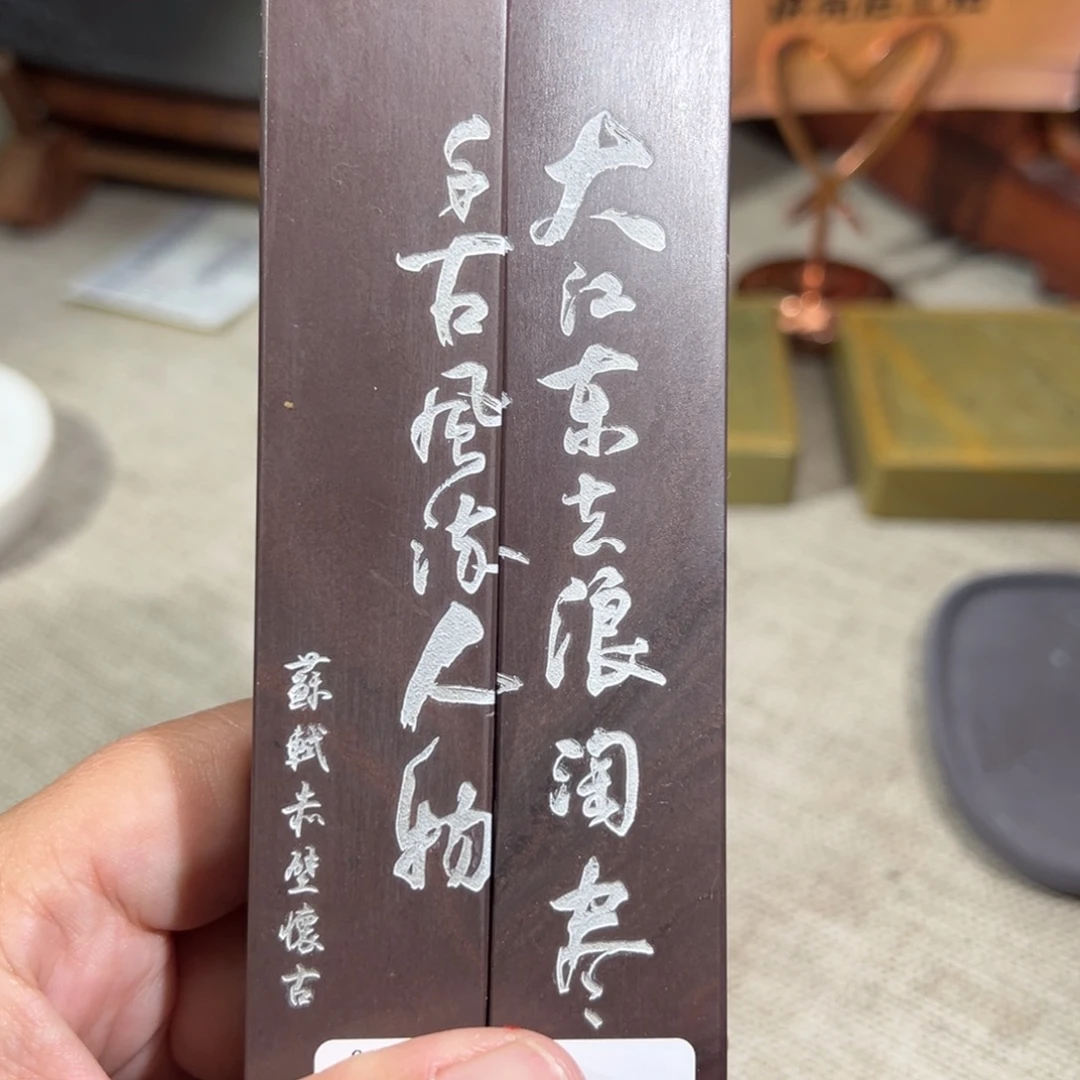 大江东去浪淘尽
千古風流人物
蘇軾赤壁懷古